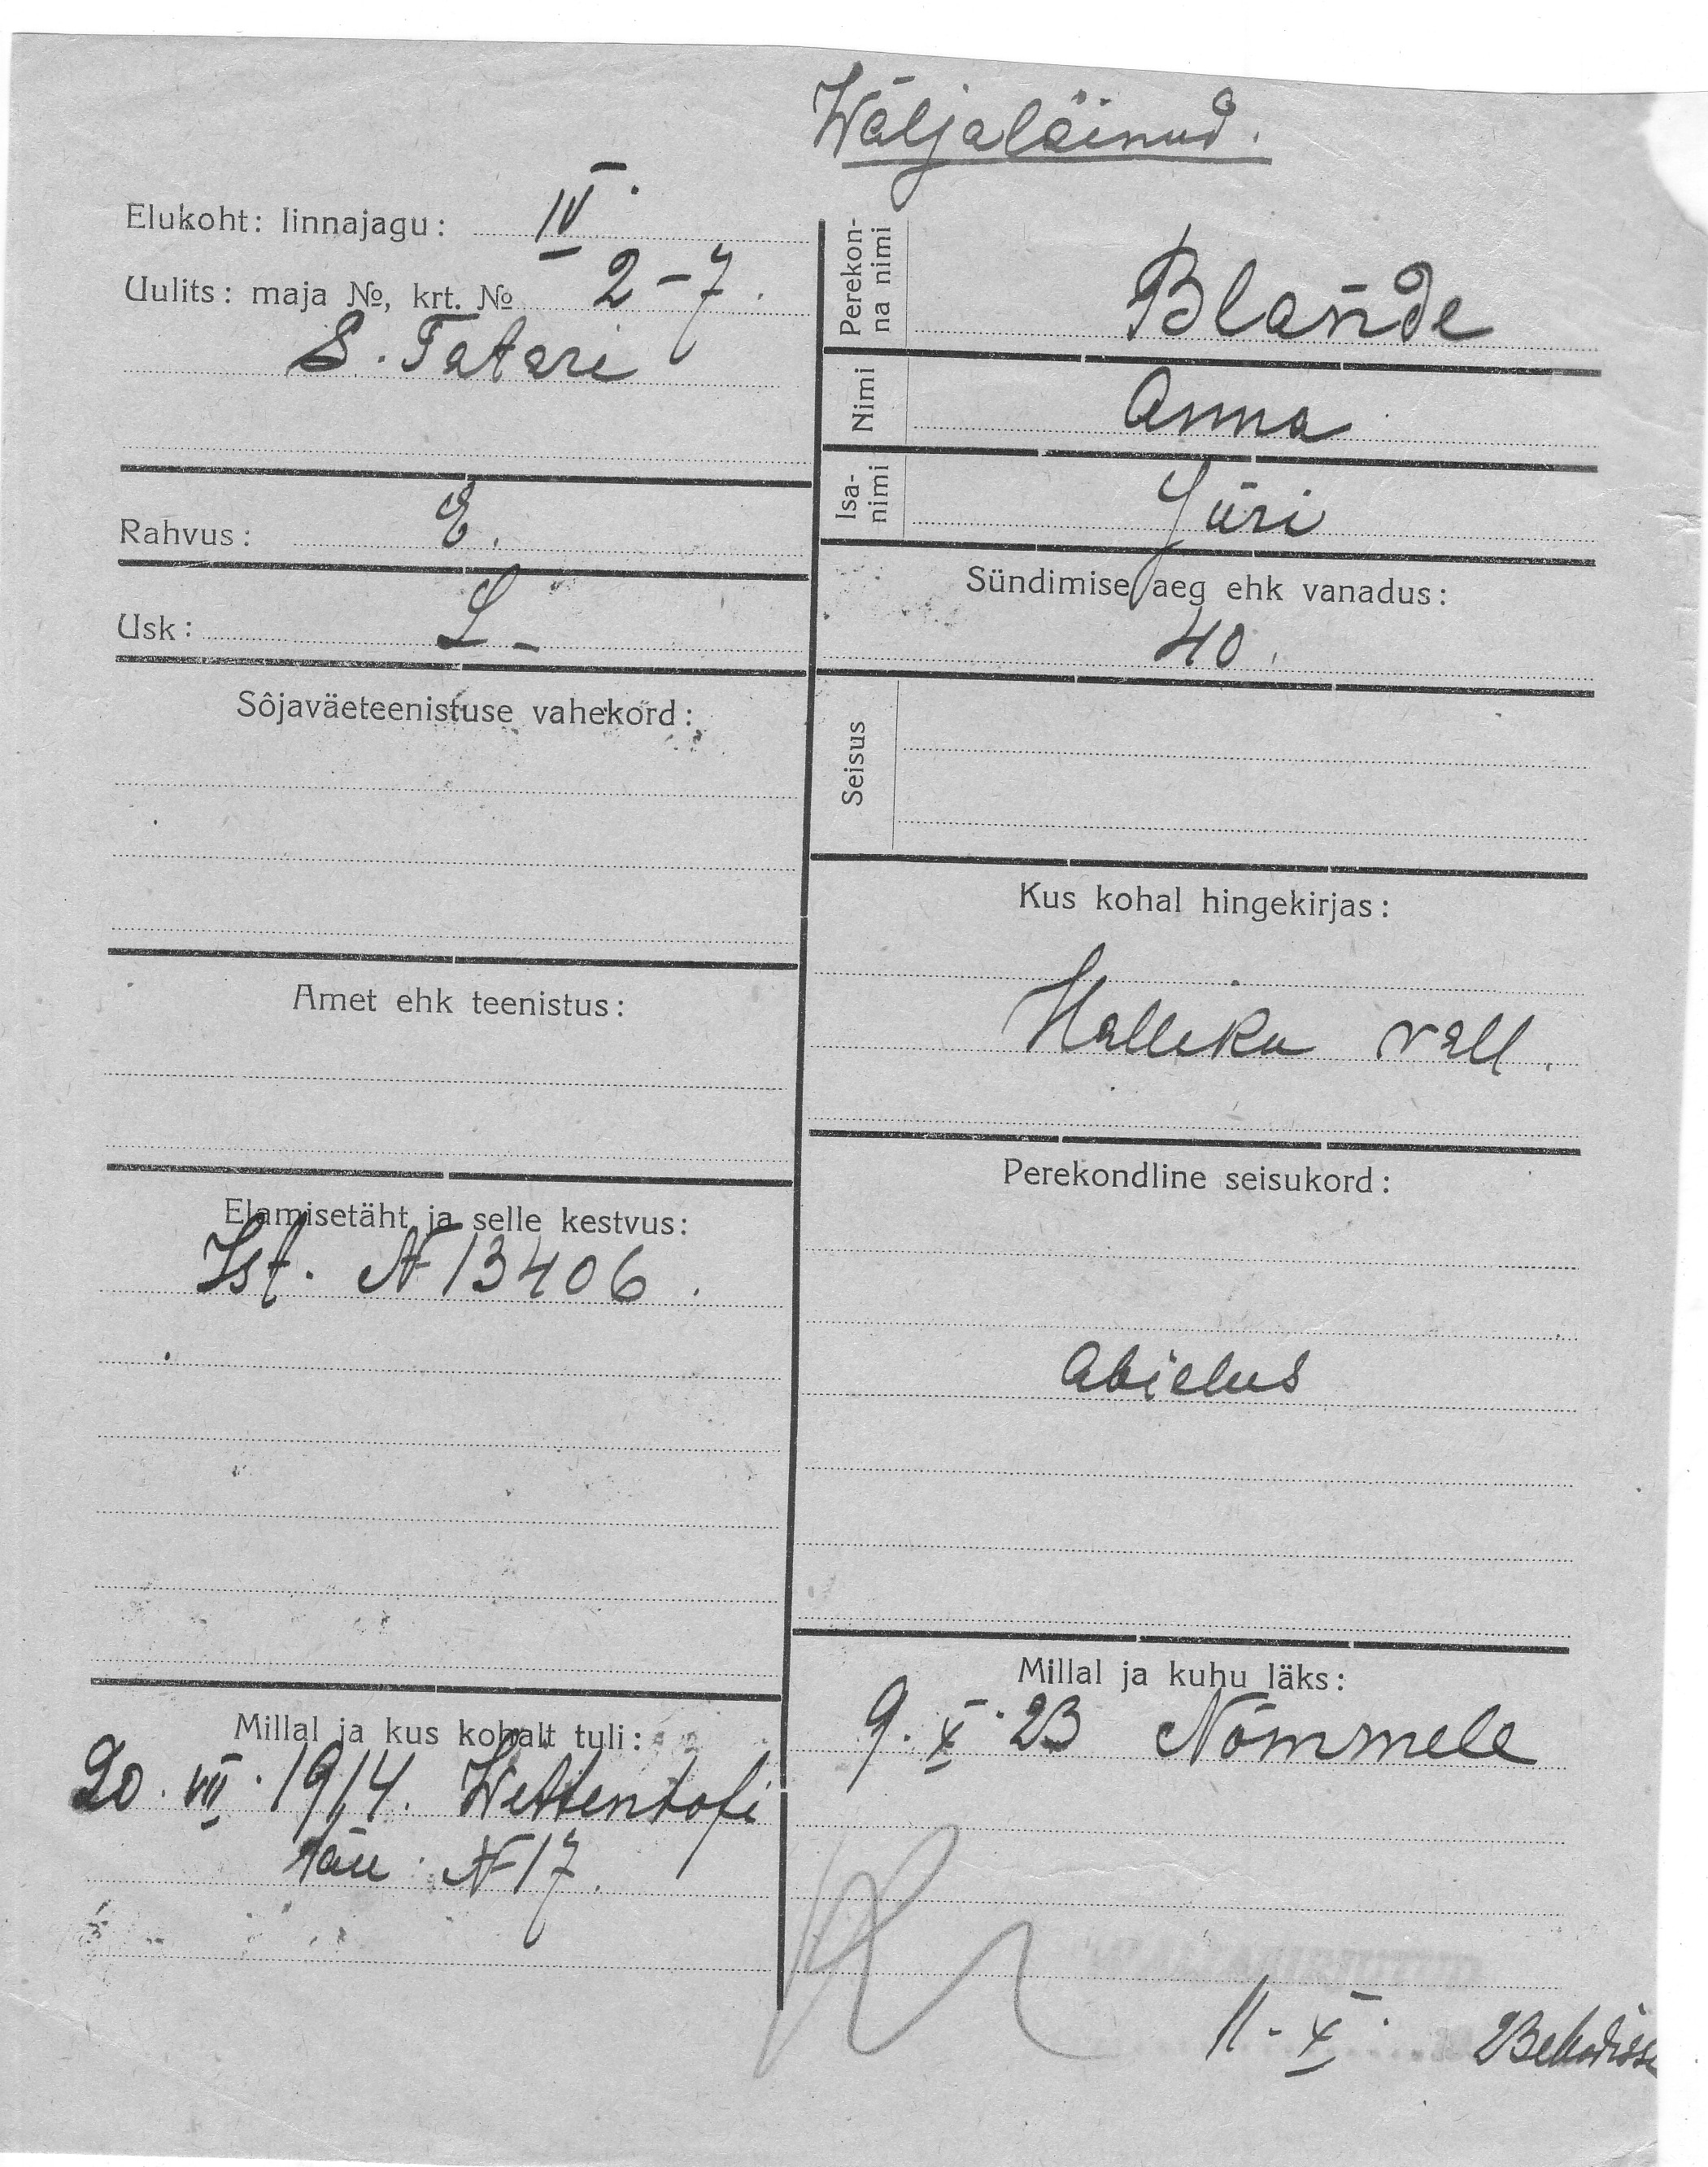 Wäljaläinud.
Elukoht: linnajagu: IV.
Uulits: maja №, krt. № 2-7.
S. Tatari
Rahvus: E.
Usk: L-
Sôjaväeteenistuse vahekord:
Amet ehk teenistus:
Elamisetäht ja selle kestvus:
Ist. N 13406.
Millal ja kus kohalt tuli:
20. VII. 1914. Wettenhofi
tän. N 17.
Perekon-
na nimi Blande
Nimi Anna
Isa-
nimi Jüri
Sündimise aeg ehk vanadus:
40.
Seisus
Kus kohal hingekirjas:
Halliku vall.
Perekondline seisukord:
Abielus
Millal ja kuhu läks:
9. X. 23 Nõmmele
11. X. 23